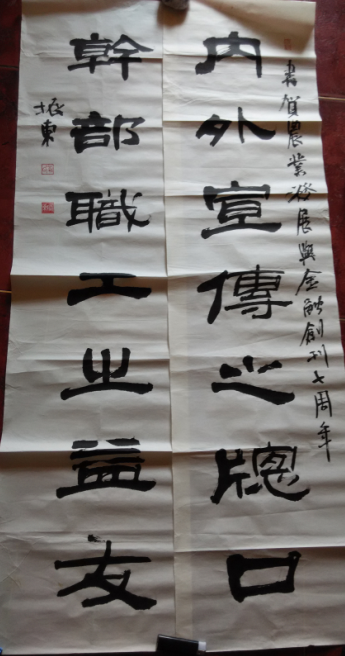 書賀農業發展與金融創刊七周年
內外宣傳之牕口
幹部職工之益友
振東